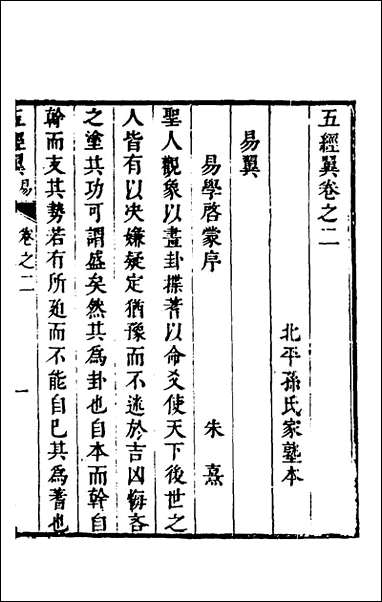 五經翼卷之二
北平孫氏家塾本
易翼
易學啓蒙序　朱熹
聖人觀象以畫卦揲蓍以命爻使天下後世之
人皆有以决嫌疑定猶豫而不迷於吉凶悔吝
之塗其功可謂盛矣然其為卦也自本而幹自
幹而支其勢若有所廹而不能自已其為蓍也
五經翼　易　卷之二　一